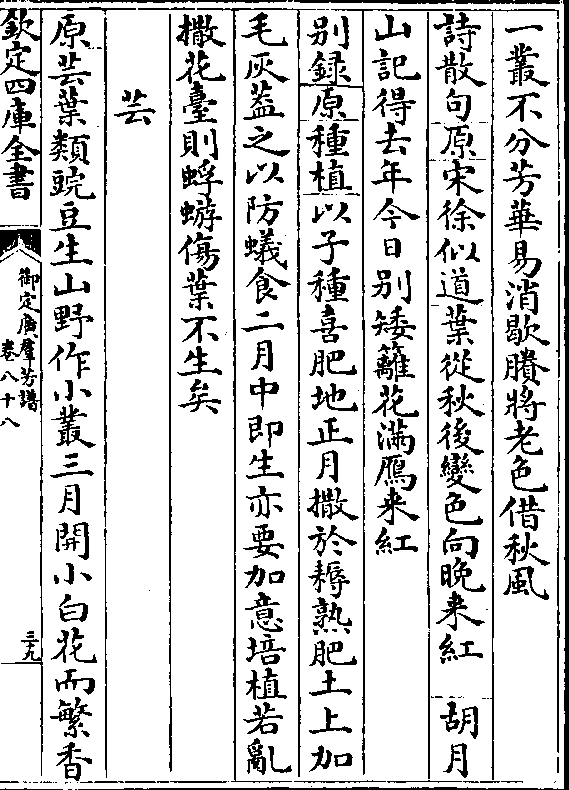 一叢不分芳華易消歇賸將老色借秋風
詩散句原宋徐似道葉從秋後變色向晚来紅 胡月
山記得去年今日别矮籬花滿鴈来紅
别録原種植以子種喜肥地正月撒於耨熟肥土上加
毛灰葢之以防蟻食二月中即生亦要加意培植若亂
撒花臺則蜉蝣傷葉不生矣
芸
原芸葉類豌豆生山野作小叢三月開小白花而繁香
欽定四庫全書
御定廣羣芳譜
卷八十八
三九